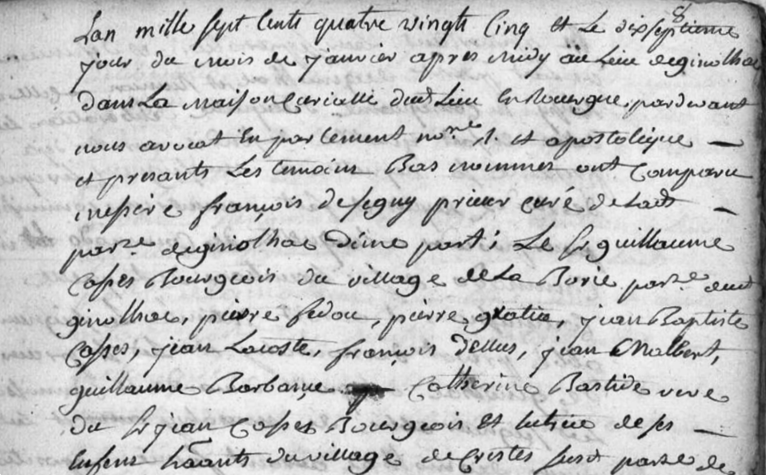 Lan mille sept Cents quatre vingts Cinq et Le dixseptieme
jour du mois de janvier apres midy au Lieu deginolhac
dans La maison Curialle dud Lieu en Rouergue, pardevant
nous avocat En parlement no.re r. et apostolique
et presants Les temoins Bas nommes ont Comparu
messire françois de segny prieur curé de Ladt
par.se deginolhac d'une part; Le Sr guillaume
Casses Bourgeois du village de La Borie par.se dud
ginolhac, pierre fedou, pierre gratia, jean Baptiste
Casses, jean Lacoste, françois dellus, jean Malbert,
guillaume Barbance Catherine Bastide veve
du Sr jean Casses Bourgeois et tutrice de ses
Enfens haants du village de susd parse de